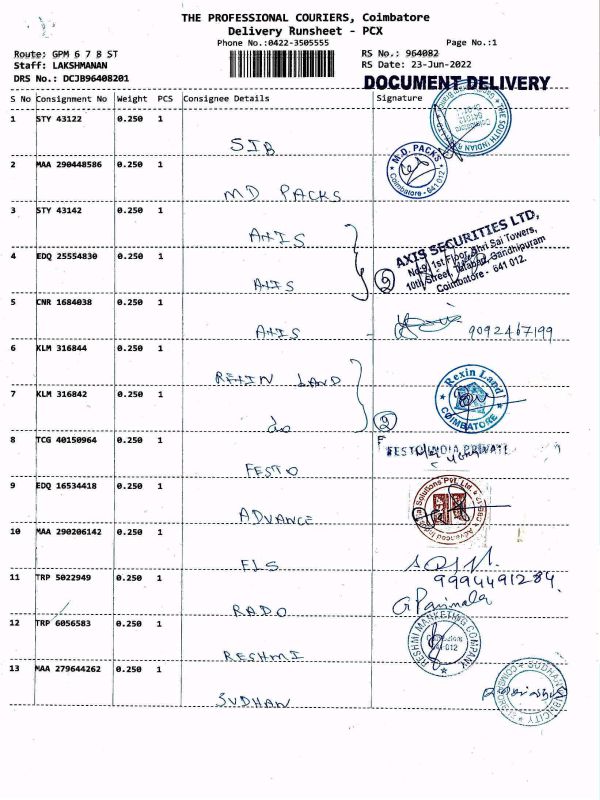 THE PROFESSIONAL COURIERS, Coimbatore
Delivery Runsheet - PCX
Phone No.:0422-3505555
Page No.:1
Route: GPM 6 7 8 ST
RS No.: 964082
Staff: LAKSHMANAN
RS Date: 23-Jun-2022
DRS No.: DCJB96408201
DOCUMENT DELIVERY
S No Consignment No Weight PCS Consignee Details Signature
1 STY 43122 0.250 1
SIB
2 MAA 290448586 0.250 1
M.D. PACKS
Coimbatore - 641 012
MD PACKS
3 STY 43142 0.250 1
AXIS
AXIS SECURITIES LTD,
No.9, 1st Floor, Shri Sai Towers,
10th Street, Tatabad, Gandhipuram
Coimbatore - 641 012.
4 EDQ 25554830 0.250 1
2
AXIS
5 CNR 1684038 0.250 1
AXIS
9092467199
6 KLM 316844 0.250 1
REXIN LAND
Rexin Land
COIMBATORE
7 KLM 316842 0.250 1
do
2
8 TCG 40150964 0.250 1
FESTO INDIA PRIVATE
FESTO
9 EDQ 16534418 0.250 1
ADVANCE
10 MAA 290206142 0.250 1
ELS
9994491284
11 TRP 5022949 0.250 1
RADO
12 TRP 6056583 0.250 1
RESHMI MARKETING COMPANY
RESHMI
13 MAA 279644262 0.250 1
SUDHAN